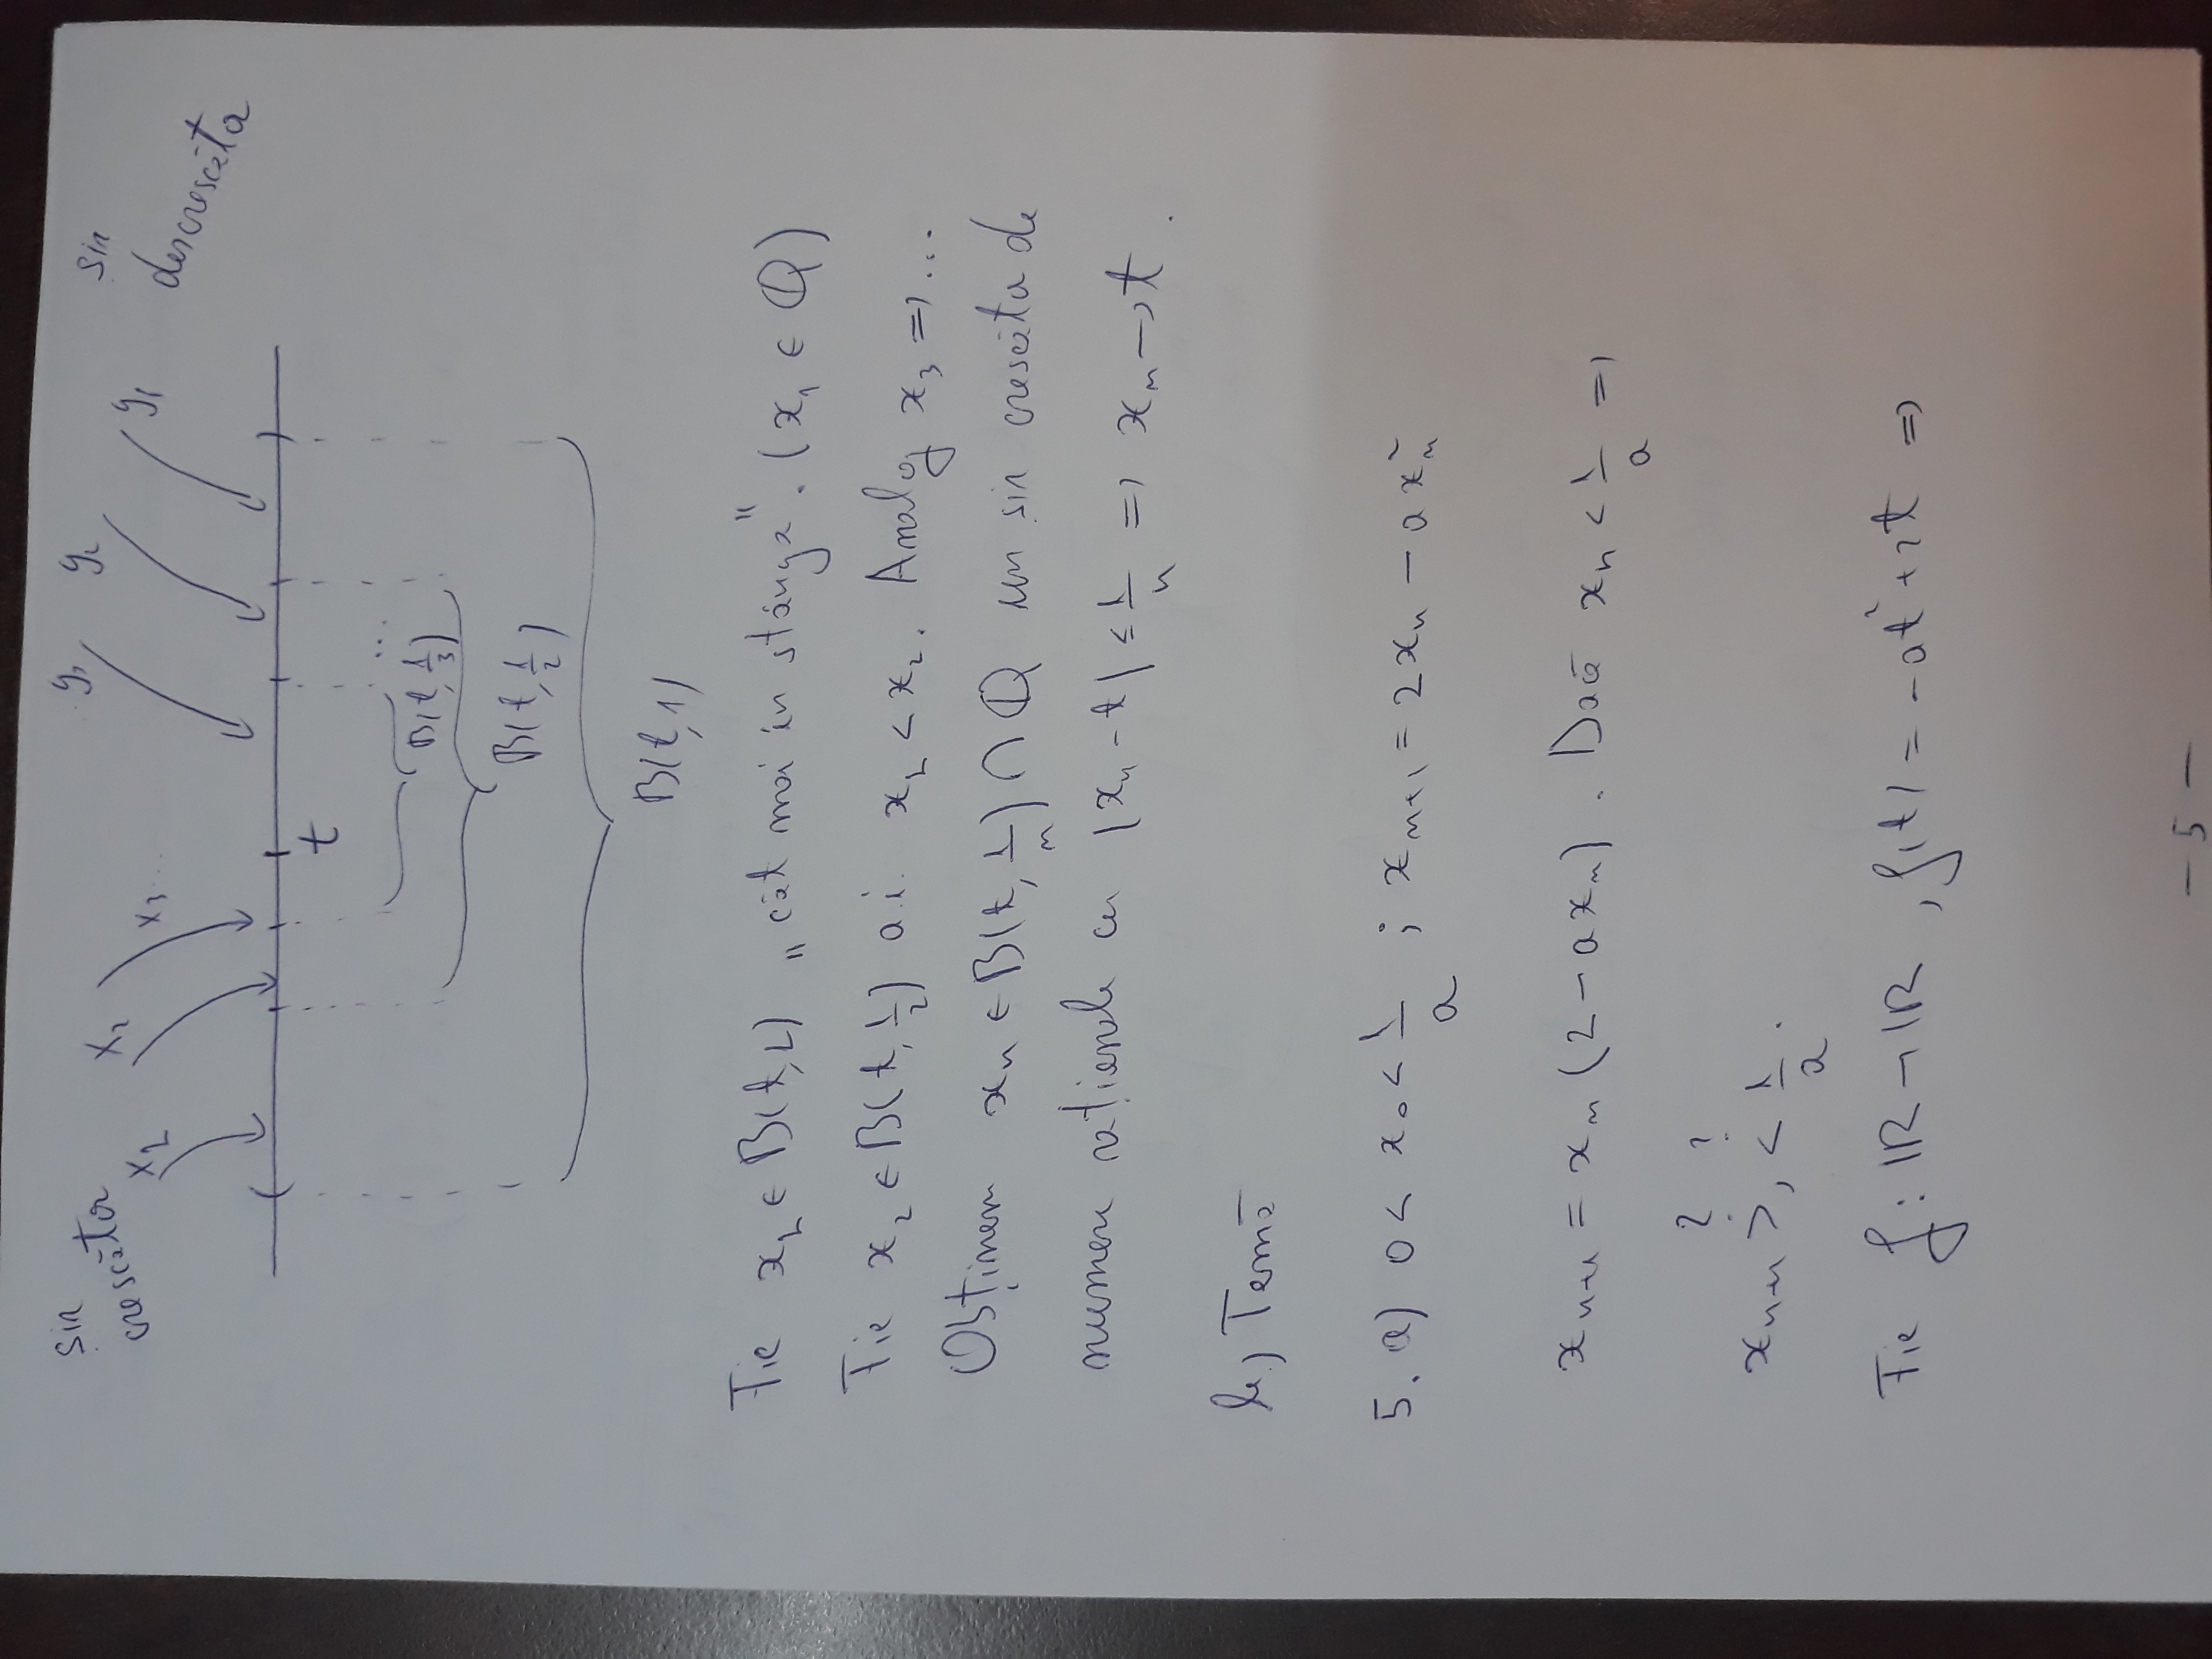 șir
crescător
x₁ x₂ x₃ ...
y₃ y₂ y₁
șir
descrescător
t
...
B(t, 1/3)
B(t, 1/2)
B(t, 1)
Fie x₁ ∈ B(t, 1) „cât mai în stânga". (x₁ ∈ ℚ)
Fie x₂ ∈ B(t, 1/2) a.î. x₁ < x₂. Analog x₃ ⇒ ...
Obținem xₙ ∈ B(t, 1/n) ∩ ℚ un șir crescător de
numere raționale cu |xₙ - t| ≤ 1/n ⇒ xₙ → t.
b) Temă
5. a) 0 < x₀ < 1/a ; xₙ₊₁ = 2xₙ - axₙ²
xₙ₊₁ = xₙ(2 - axₙ). Dacă xₙ < 1/a ⇒
? ?
xₙ₊₁ >, < 1/a.
Fie f: ℝ → ℝ, f(t) = -at² + 2t ⇒
- 5 -